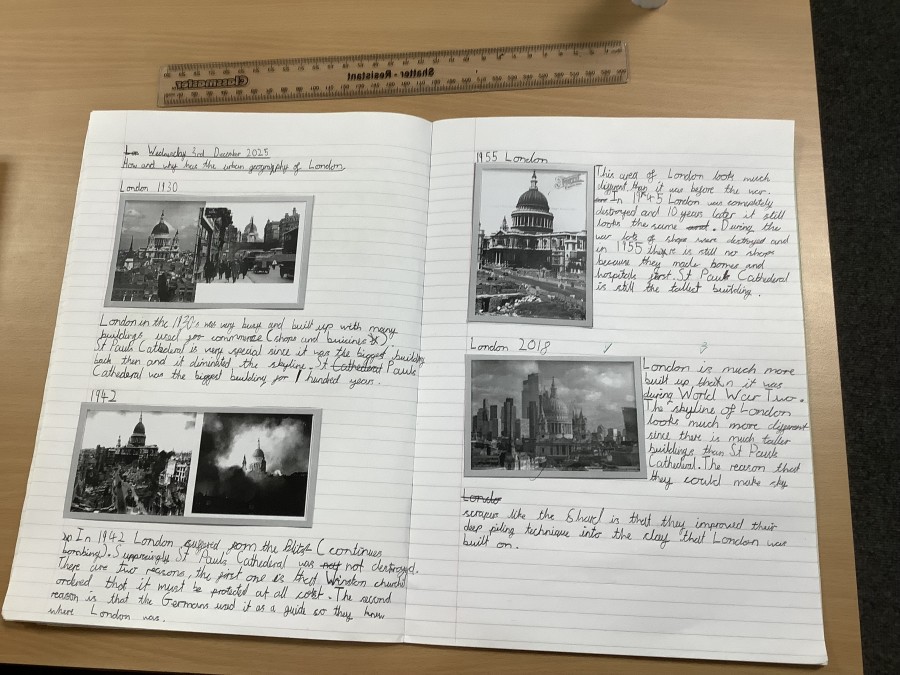 Shatter - Resistant
Classmaster
Wednesday 3rd December 2025
How and why has the urban geography of London
London 1930
London in the 1930's was very busy and built up with many
buildings used for commerce (shops and
St Pauls Cathedral is very special since it was the biggest building
back then and it dominated the skyline. St Cathedral Pauls
Cathedral was the biggest building for 1 hundred years.
1942
In 1942 London suffered from the Blitz (continues
bombing). Supprisingly St Pauls Cathedral was not not destroyed.
There are two reasons, the first one is that Winston churchill
ordered that it must be protected at all cost. The second
reason is that the Germans used it as a guide so they knew
where London was.
1955 London
This area of London looks much
different than it was before the war.
In 1945 London was completely
destroyed and 10 years later it still
looks the same. During the
war lots of shops were destroyed and
in 1955 there is still no shops
because they made homes and
hospitals first St Pauls Cathederal
is still the tallest building.
London 2018
London is much more
built up than it was
during World War Two.
The skyline of London
looks much more different
since there is much taller
buildings than St Pauls
Cathedral. The reason that
they could make sky
Londo
scrapers like the Shard is that they improved their
deep piling technique into the clay that London was
built on.